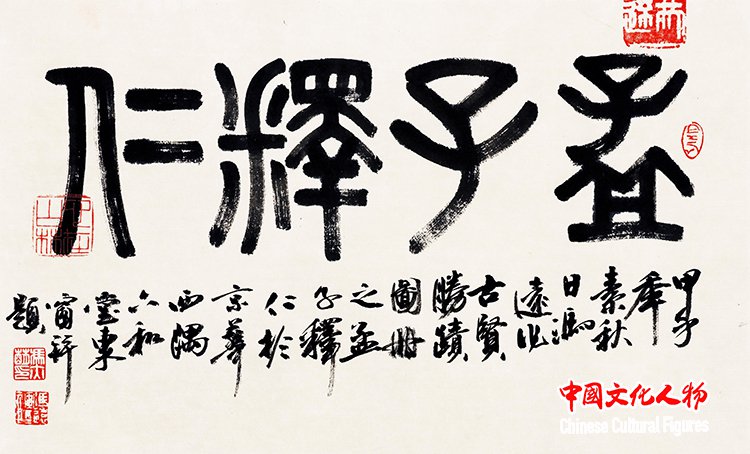 孟子釋仁
甲午
年
素秋
日馮
遠作
古賢
勝蹟
圖冊
之孟
子釋
仁於
京華
西隅
六和
堂東
窗
題
中國文化人物
Chinese Cultural Figures